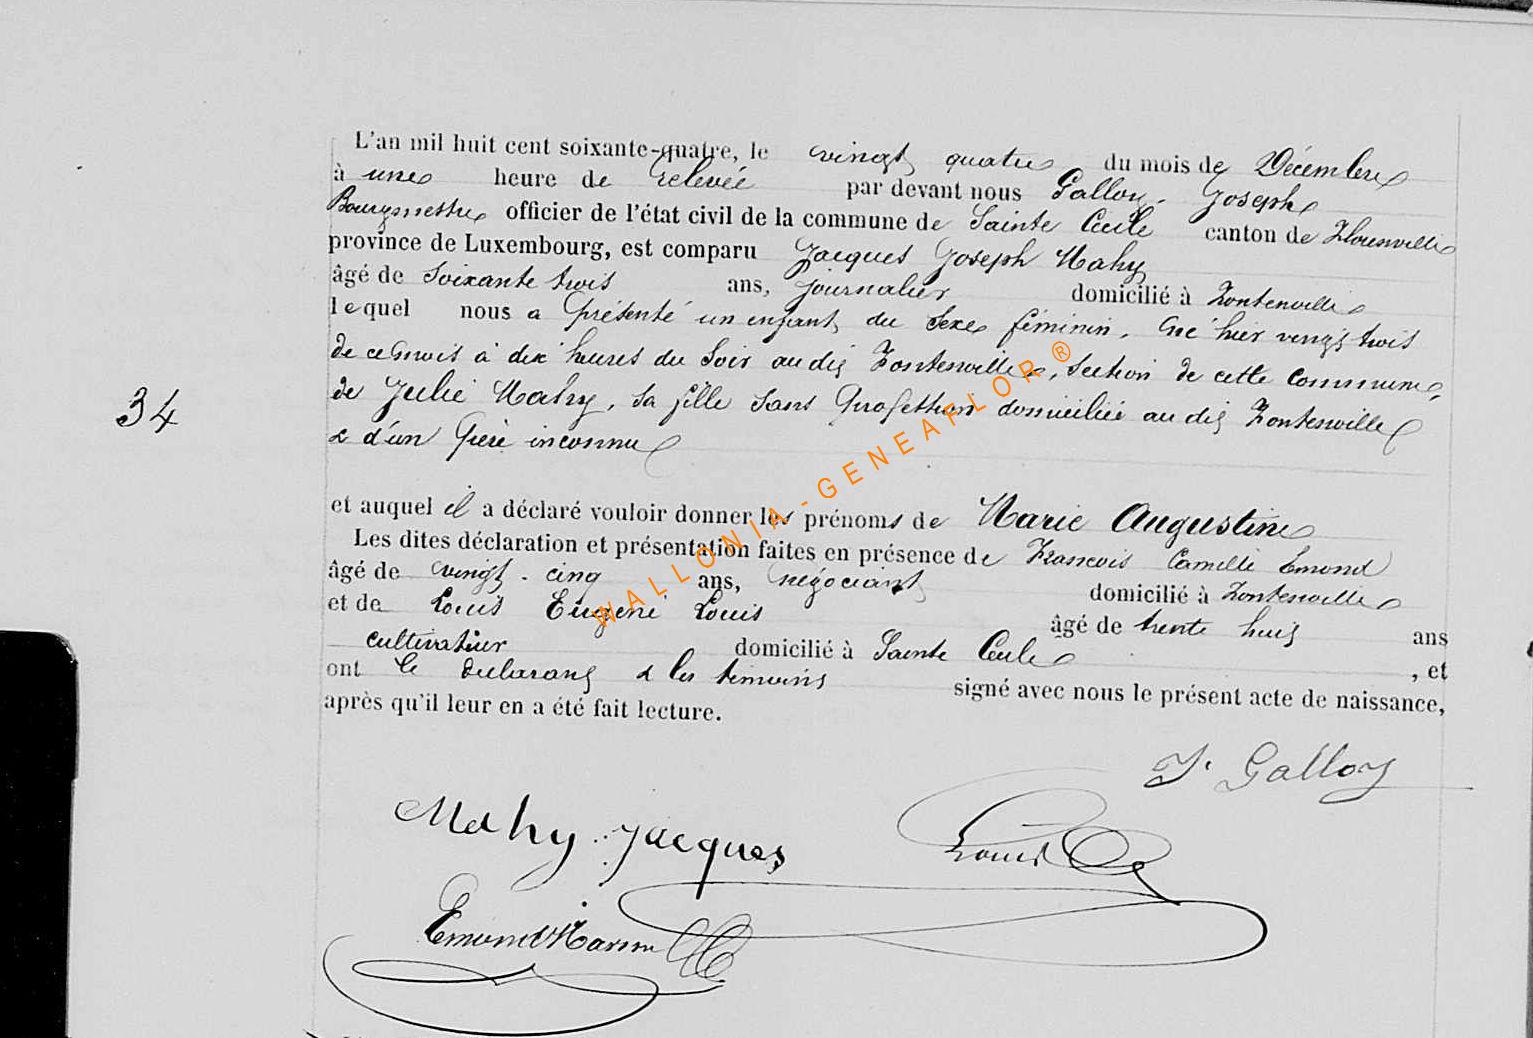 L'an mil huit cent soixante-quatre, le vingt quatre du mois de Décembre
à une heure de relevée par devant nous Galloy Joseph
Bourgmestre officier de l'état civil de la commune de Sainte Cecile canton de Florenville
province de Luxembourg, est comparu Jacques Joseph Mahy
âgé de soixante trois ans, journalier domicilié à Fontenoille
lequel nous a présenté un enfant du sexe féminin, né hier vingt trois
de ce mois à dix heures du soir au dit Fontenoille, section de cette commune,
de Julie Mahy, sa fille sans profession domiciliée au dit Fontenoille
& d'un père inconnu
34
et auquel il a déclaré vouloir donner les prénoms de Marie Augustine
Les dites déclaration et présentation faites en présence de François Camille Emond
âgé de vingt-cinq ans, négociant domicilié à Fontenoille
et de Louis Eugène Louis âgé de trente huit ans
cultivateur domicilié à Sainte Cecile, et
ont le déclarant & les témoins signé avec nous le présent acte de naissance,
après qu'il leur en a été fait lecture.
J. Galloy
Mahy Jacques
Louis
Emond
WALLONIA-GENEAFLOR ®